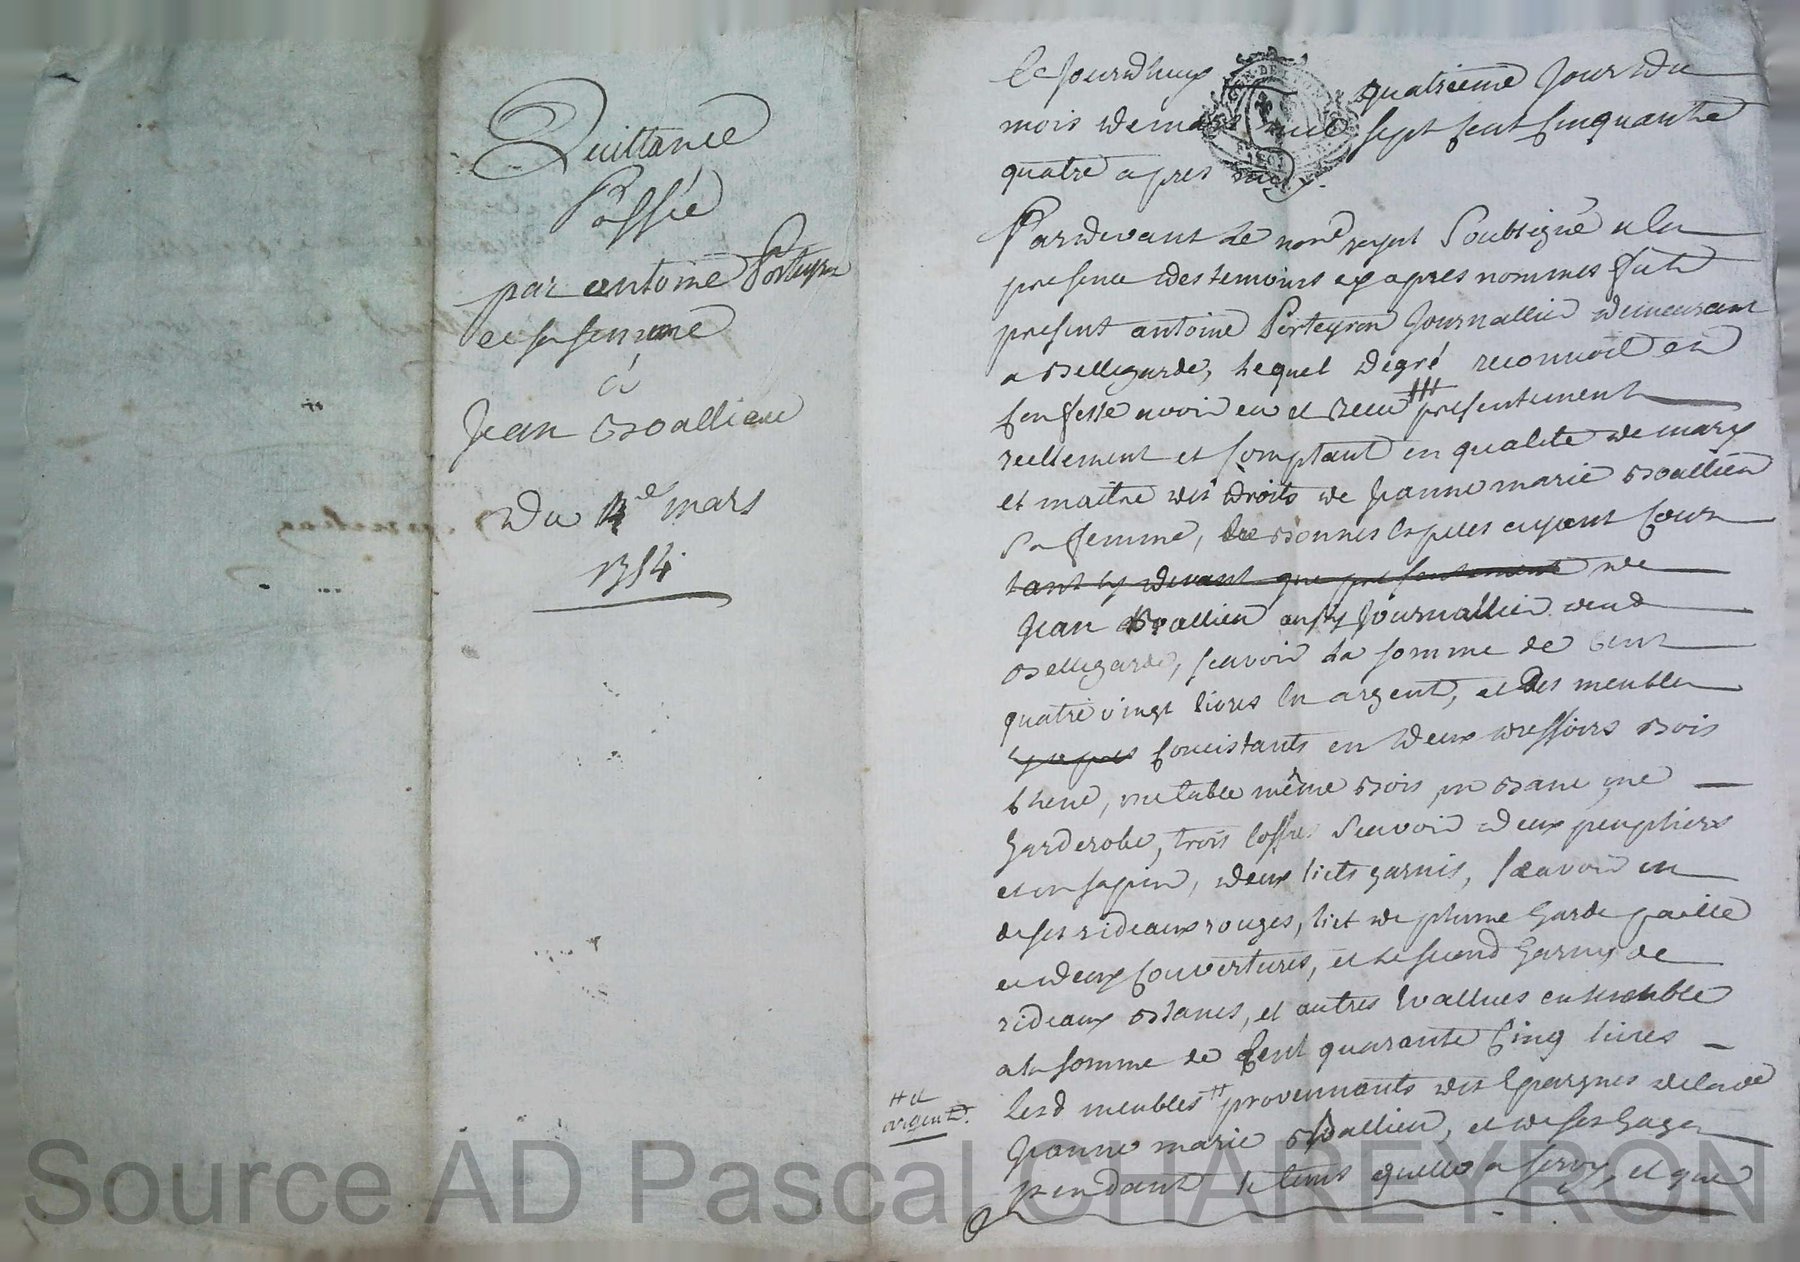 Quittance
Passée
par antoine Porteyron
et sa femme
à
Jean Boallieu
Du 4e mars
1754
Cejourdhuy quatrieme jour du
mois de mars mil sept cent cinquante
quatre apres midy.
Pardevant le nore royal soubsigné a la
presence des temoins cy apres nommes fut
present antoine Porteyron Journallier demeurant
a Bellegarde, lequel dégré reconnoit et
confesse avoir eu et receu presentement
reellement et comptant en qualité de mary
et maitre des droits de Jeanne marie Boallieu
sa femme, les bonnes especes ayant cours
tant cy devant que presentement de
Jean Boallieu aussy Journallier dud
Bellegarde, scavoir la somme de cent
quatre vingt livres en argent, et des meubles
concistants en deux dressoirs bois
chene, une table même bois un banc une
garderobe, trois coffres scavoir deux peupliers
et un sapin, deux licts garnis, scavoir un
de ses rideaux rouges, lict de plume garde paille
et deux couvertures, et le second garny de
rideaux blancs, et autres evallues ensemble
a la somme de cent quarante cinq livres
lesd meubles # provennants des Epargnes de lad
Jeanne marie Boallieu, et de ses gages
pendant le tems quelle a servy, et que
# et
argent
Source AD Pascal CHAREYRON